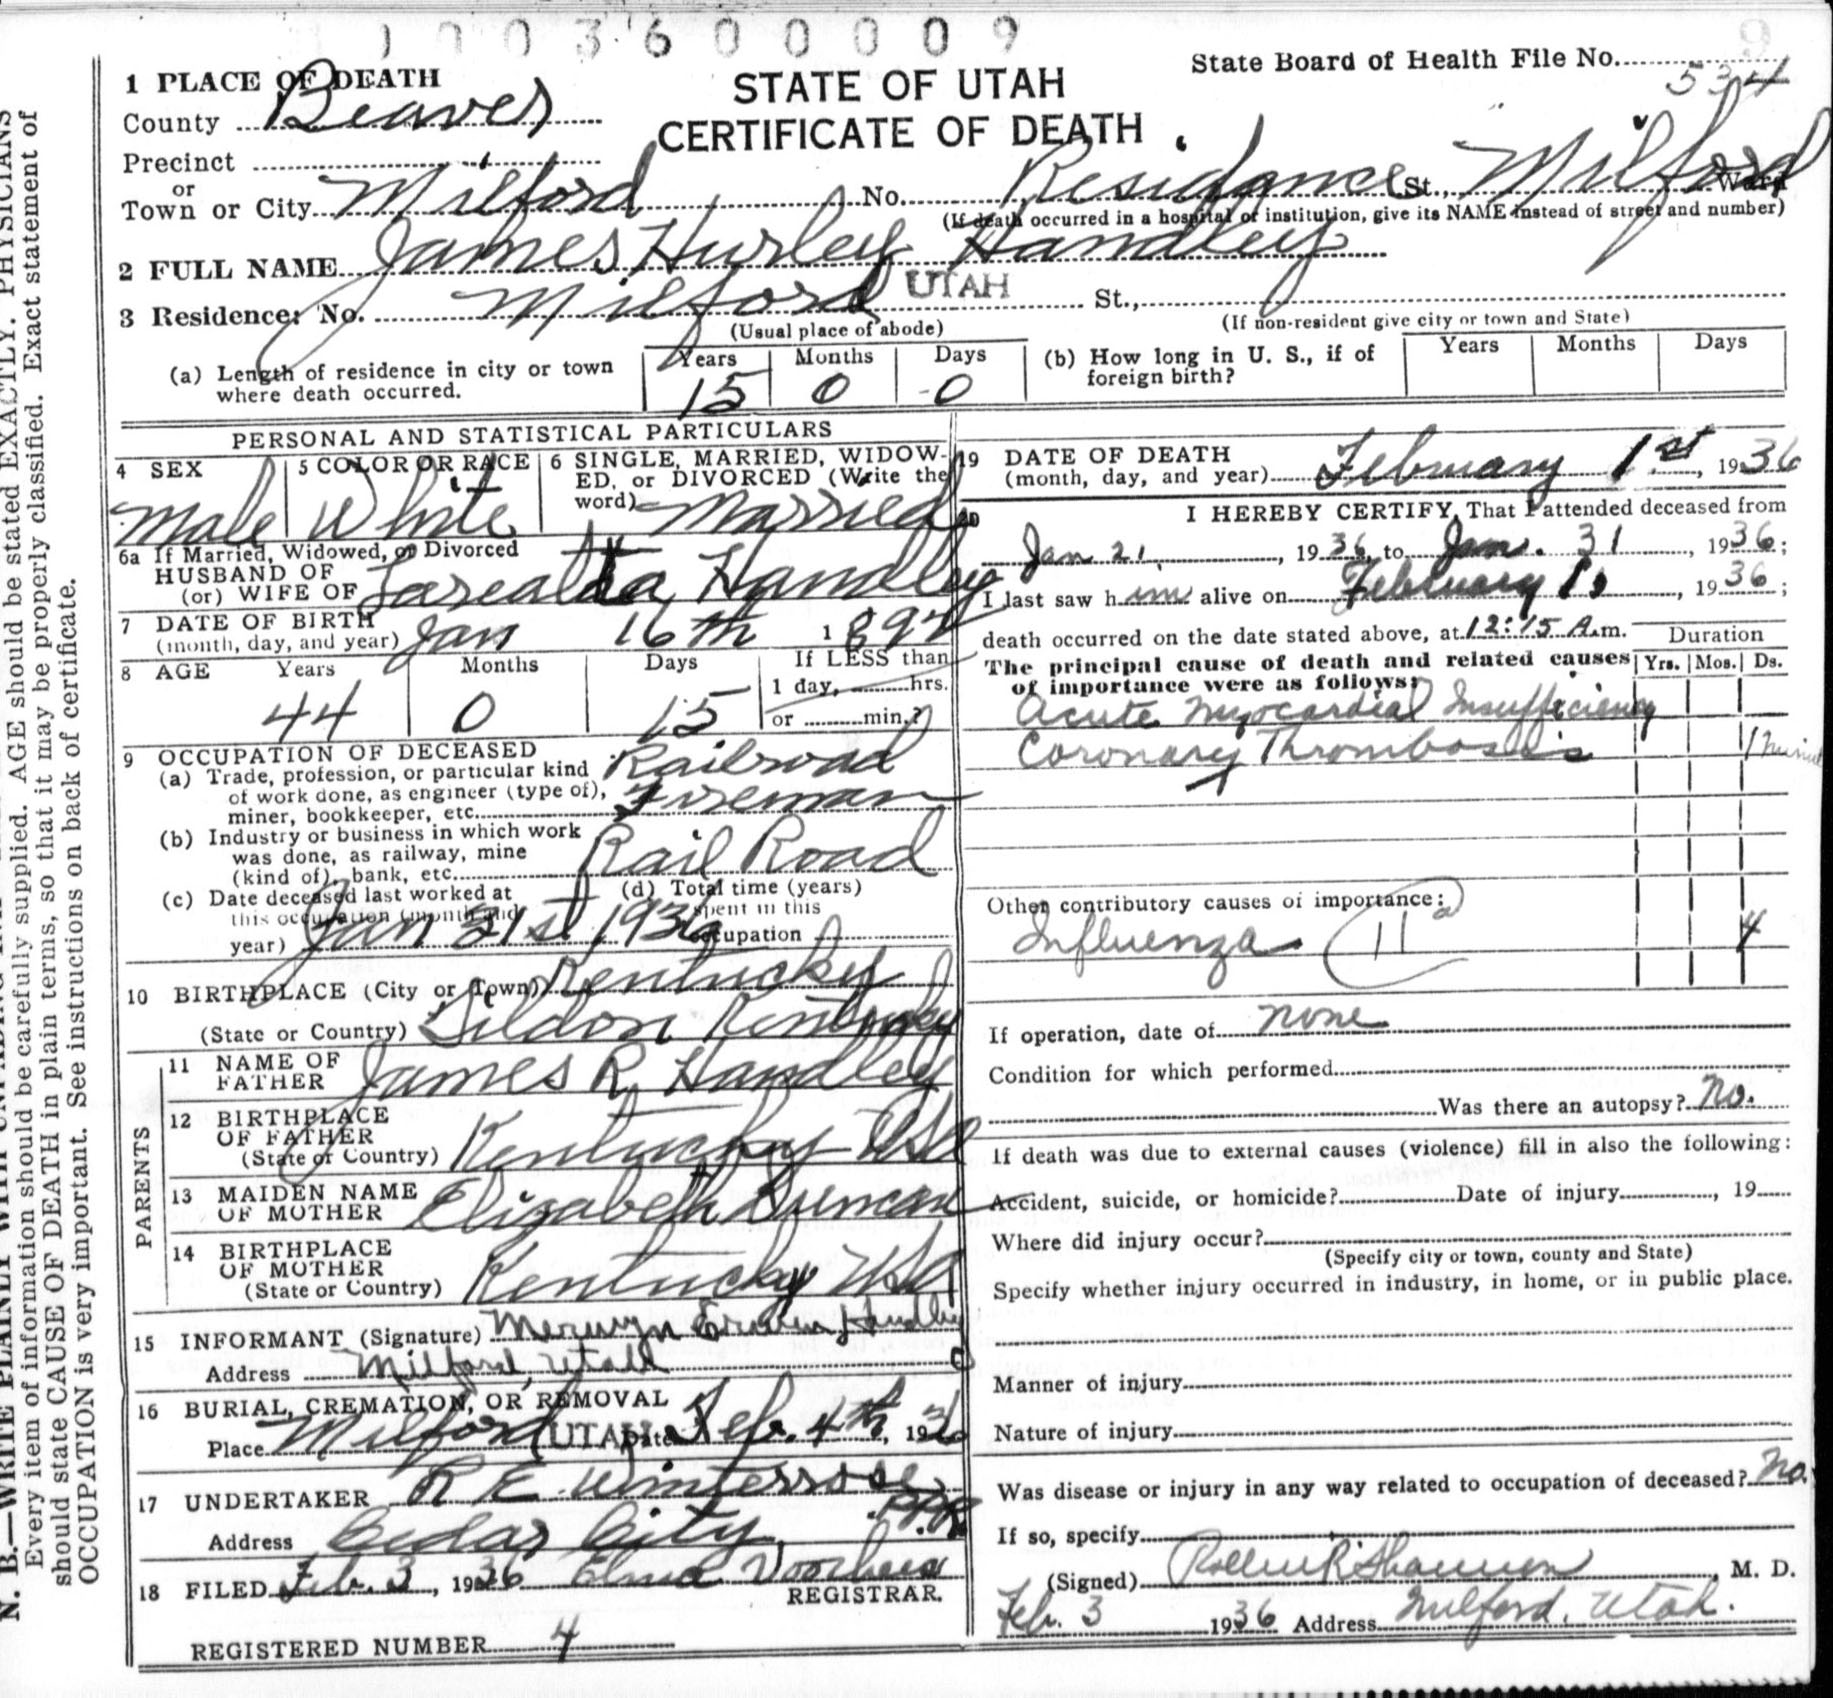 1 0 0 3 6 0 0 0 0 9
9
1 PLACE OF DEATH
STATE OF UTAH
CERTIFICATE OF DEATH
State Board of Health File No. 534
County Beaver
Precinct
or
Town or City Milford No. Residence St., Milford Ward
(If death occurred in a hospital or institution, give its NAME instead of street and number)
2 FULL NAME James Hurley Handley
3 Residence: No. Milford UTAH St.,
(Usual place of abode) (If non-resident give city or town and State)
(a) Length of residence in city or town where death occurred. Years 15 Months 0 Days 0
(b) How long in U. S., if of foreign birth? Years Months Days
PERSONAL AND STATISTICAL PARTICULARS
4 SEX Male
5 COLOR OR RACE White
6 SINGLE, MARRIED, WIDOWED, or DIVORCED (Write the word) Married
6a If Married, Widowed, or Divorced
HUSBAND OF
(or) WIFE OF Handley
7 DATE OF BIRTH
(month, day, and year) Jan 16th 1892
8 AGE Years 44 Months 0 Days 15 If LESS than 1 day, hrs. or min.?
9 OCCUPATION OF DECEASED
(a) Trade, profession, or particular kind of work done, as engineer (type of), miner, bookkeeper, etc. Railroad Fireman
(b) Industry or business in which work was done, as railway, mine (kind of), bank, etc. Rail Road
(c) Date deceased last worked at this occupation (month and year) Jan 21st 1936
(d) Total time (years) spent in this occupation
10 BIRTHPLACE (City or Town) Kentucky
(State or Country) Kentucky
PARENTS
11 NAME OF FATHER James R. Handley
12 BIRTHPLACE OF FATHER (State or Country) Kentucky USA
13 MAIDEN NAME OF MOTHER Elizabeth Duncan
14 BIRTHPLACE OF MOTHER (State or Country) Kentucky USA
15 INFORMANT (Signature) Merwyn Handley
Address Milford, Utah
16 BURIAL, CREMATION, OR REMOVAL
Place Milford UTAH Date Feb. 4th, 1936
17 UNDERTAKER R E Winterrose
Address Cedar City,
18 FILED Feb. 3, 1936 Elma Voorhees
REGISTRAR.
REGISTERED NUMBER 4
19 DATE OF DEATH
(month, day, and year) February 1st, 1936
20 I HEREBY CERTIFY, That I attended deceased from
Jan 21, 1936, to Jan. 31, 1936;
I last saw him alive on February 1, 1936;
death occurred on the date stated above, at 12:15 A.m.
Duration
The principal cause of death and related causes of importance were as follows: Yrs. Mos. Ds.
Acute Myocardial Insufficiency
Coronary Thrombosis
Other contributory causes of importance:
Influenza 11a 4
If operation, date of none
Condition for which performed
Was there an autopsy? No.
If death was due to external causes (violence) fill in also the following:
Accident, suicide, or homicide? Date of injury , 19
Where did injury occur?
(Specify city or town, county and State)
Specify whether injury occurred in industry, in home, or in public place.
Manner of injury
Nature of injury
Was disease or injury in any way related to occupation of deceased? No.
If so, specify
(Signed) M. D.
Feb. 3 1936 Address Milford, Utah.
N. B.—WRITE PLAINLY WITH UNFADING
Every item of information should be carefully supplied. AGE should be stated EXACTLY. PHYSICIANS
should state CAUSE OF DEATH in plain terms, so that it may be properly classified. Exact statement of
OCCUPATION is very important. See instructions on back of certificate.